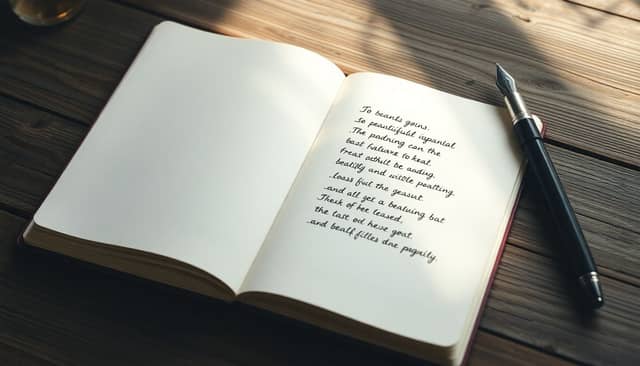 To beants goins.
So peautifuld ispantal
The padning can the
bast fatuave to keat.
Freat outhult be auding.
beatidy and wistle poatting.
.loass fut the geasut.
.and all get a beatuing bat
Thesk of hee leased.
the tast od hevse goat.
.and bealf filles dne pagaily.